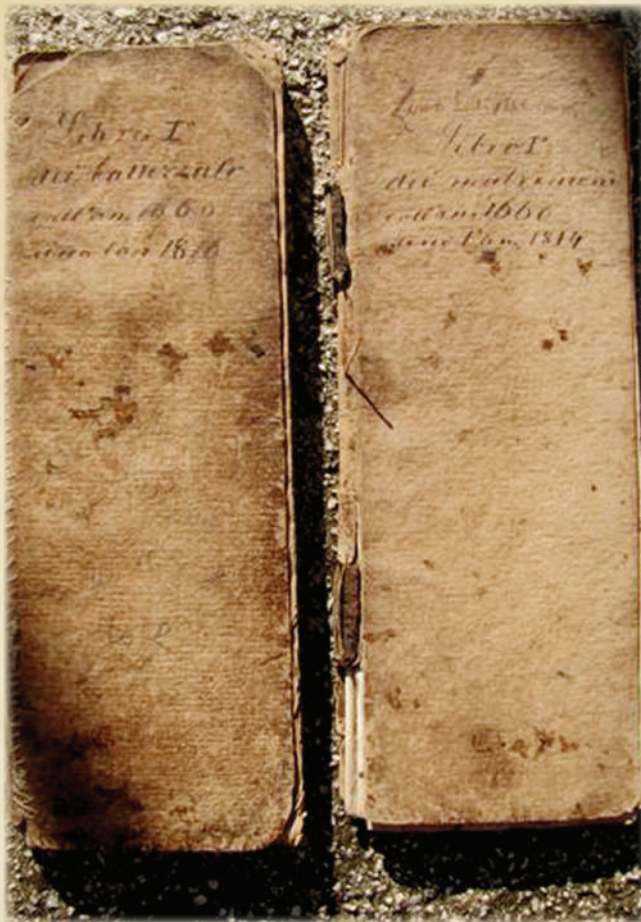 Libro I
dei battezzati
dall'an 1660
sino l'an 1816
Libro I
dei matrimoni
dall'ann 1660
sino l'an. 1814